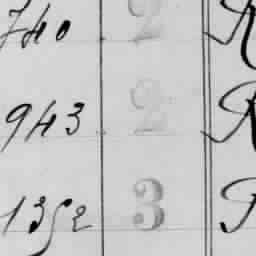 740 2 R
943 2 R
1352 3